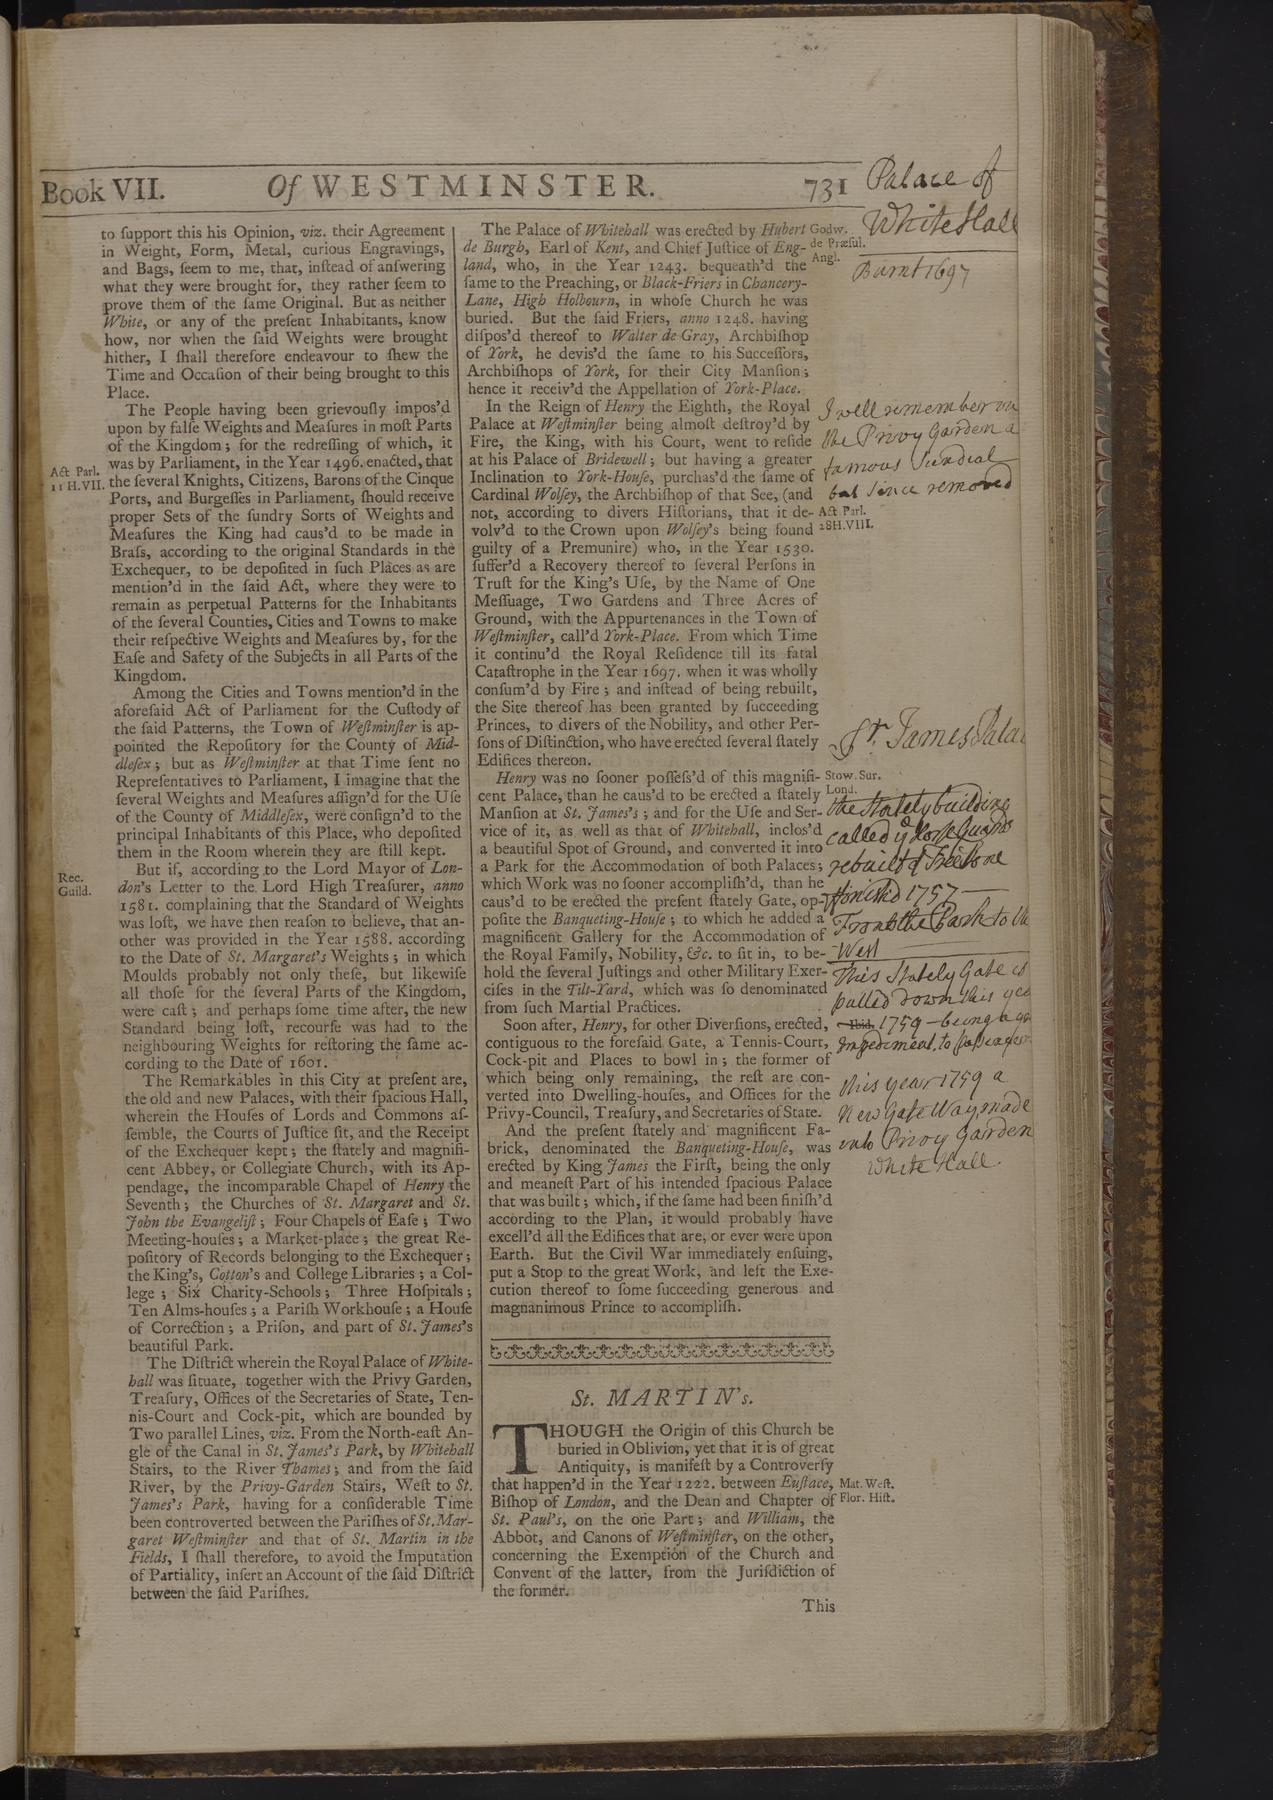 Book VII. Of WESTMINSTER. 731
to ſupport this his Opinion, viz. their Agreement
in Weight, Form, Metal, curious Engravings,
and Bags, ſeem to me, that, inſtead of anſwering
what they were brought for, they rather ſeem to
prove them of the ſame Original. But as neither
White, or any of the preſent Inhabitants, know
how, nor when the ſaid Weights were brought
hither, I ſhall therefore endeavour to ſhew the
Time and Occaſion of their being brought to this
Place.
The People having been grievouſly impos'd
upon by falſe Weights and Meaſures in moſt Parts
of the Kingdom; for the redreſſing of which, it
was by Parliament, in the Year 1496. enacted, that
the ſeveral Knights, Citizens, Barons of the Cinque
Ports, and Burgeſſes in Parliament, ſhould receive
proper Sets of the ſundry Sorts of Weights and
Meaſures the King had caus'd to be made in
Braſs, according to the original Standards in the
Exchequer, to be depoſited in ſuch Places as are
mention'd in the ſaid Act, where they were to
remain as perpetual Patterns for the Inhabitants
of the ſeveral Counties, Cities and Towns to make
their reſpective Weights and Meaſures by, for the
Eaſe and Safety of the Subjects in all Parts of the
Kingdom.
Among the Cities and Towns mention'd in the
aforeſaid Act of Parliament for the Cuſtody of
the ſaid Patterns, the Town of Weſtminſter is ap-
pointed the Repoſitory for the County of Mid-
dleſex; but as Weſtminſter at that Time ſent no
Repreſentatives to Parliament, I imagine that the
ſeveral Weights and Meaſures aſſign'd for the Uſe
of the County of Middleſex, were conſign'd to the
principal Inhabitants of this Place, who depoſited
them in the Room wherein they are ſtill kept.
But if, according to the Lord Mayor of Lon-
don's Letter to the Lord High Treaſurer, anno
1581. complaining that the Standard of Weights
was loſt, we have then reaſon to believe, that an-
other was provided in the Year 1588. according
to the Date of St. Margaret's Weights; in which
Moulds probably not only theſe, but likewiſe
all thoſe for the ſeveral Parts of the Kingdom,
were caſt; and perhaps ſome time after, the new
Standard being loſt, recourſe was had to the
neighbouring Weights for reſtoring the ſame ac-
cording to the Date of 1601.
The Remarkables in this City at preſent are,
the old and new Palaces, with their ſpacious Hall,
wherein the Houſes of Lords and Commons aſ-
ſemble, the Courts of Juſtice ſit, and the Receipt
of the Exchequer kept; the ſtately and magnifi-
cent Abbey, or Collegiate Church, with its Ap-
pendage, the incomparable Chapel of Henry the
Seventh; the Churches of St. Margaret and St.
John the Evangeliſt; Four Chapels of Eaſe; Two
Meeting-houſes; a Market-place; the great Re-
poſitory of Records belonging to the Exchequer;
the King's, Cotton's and College Libraries; a Col-
lege; Six Charity-Schools; Three Hoſpitals;
Ten Alms-houſes; a Pariſh Workhouſe; a Houſe
of Correction; a Priſon, and part of St. James's
beautiful Park.
The Diſtrict wherein the Royal Palace of White-
hall was ſituate, together with the Privy Garden,
Treaſury, Offices of the Secretaries of State, Ten-
nis-Court and Cock-pit, which are bounded by
Two parallel Lines, viz. From the North-eaſt An-
gle of the Canal in St. James's Park, by Whitehall
Stairs, to the River Thames; and from the ſaid
River, by the Privy-Garden Stairs, Weſt to St.
James's Park, having for a conſiderable Time
been controverted between the Pariſhes of St. Mar-
garet Weſtminſter and that of St. Martin in the
Fields, I ſhall therefore, to avoid the Imputation
of Partiality, inſert an Account of the ſaid Diſtrict
between the ſaid Pariſhes.
Act Parl.
11 H.VII.
Rec.
Guild.
1
The Palace of Whitehall was erected by Hubert
de Burgh, Earl of Kent, and Chief Juſtice of Eng-
land, who, in the Year 1243. bequeath'd the
ſame to the Preaching, or Black-Friers in Chancery-
Lane, High Holbourn, in whoſe Church he was
buried. But the ſaid Friers, anno 1248. having
diſpos'd thereof to Walter de Gray, Archbiſhop
of York, he devis'd the ſame to his Succeſſors,
Archbiſhops of York, for their City Manſion;
hence it receiv'd the Appellation of York-Place.
In the Reign of Henry the Eighth, the Royal
Palace at Weſtminſter being almoſt deſtroy'd by
Fire, the King, with his Court, went to reſide
at his Palace of Bridewell; but having a greater
Inclination to York-Houſe, purchas'd the ſame of
Cardinal Wolſey, the Archbiſhop of that See, (and
not, according to divers Hiſtorians, that it de-
volv'd to the Crown upon Wolſey's being found
guilty of a Premunire) who, in the Year 1530.
ſuffer'd a Recovery thereof to ſeveral Perſons in
Truſt for the King's Uſe, by the Name of One
Meſſuage, Two Gardens and Three Acres of
Ground, with the Appurtenances in the Town of
Weſtminſter, call'd York-Place. From which Time
it continu'd the Royal Reſidence till its fatal
Cataſtrophe in the Year 1697. when it was wholly
conſum'd by Fire; and inſtead of being rebuilt,
the Site thereof has been granted by ſucceeding
Princes, to divers of the Nobility, and other Per-
ſons of Diſtinction, who have erected ſeveral ſtately
Edifices thereon.
Henry was no ſooner poſſeſs'd of this magnifi-
cent Palace, than he caus'd to be erected a ſtately
Manſion at St. James's; and for the Uſe and Ser-
vice of it, as well as that of Whitehall, inclos'd
a beautiful Spot of Ground, and converted it into
a Park for the Accommodation of both Palaces;
which Work was no ſooner accompliſh'd, than he
caus'd to be erected the preſent ſtately Gate, op-
poſite the Banqueting-Houſe; to which he added a
magnificent Gallery for the Accommodation of
the Royal Family, Nobility, &c. to ſit in, to be-
hold the ſeveral Juſtings and other Military Exer-
ciſes in the Tilt-Yard, which was ſo denominated
from ſuch Martial Practices.
Soon after, Henry, for other Diverſions, erected,
contiguous to the foreſaid Gate, a Tennis-Court,
Cock-pit and Places to bowl in; the former of
which being only remaining, the reſt are con-
verted into Dwelling-houſes, and Offices for the
Privy-Council, Treaſury, and Secretaries of State.
And the preſent ſtately and magnificent Fa-
brick, denominated the Banqueting-Houſe, was
erected by King James the Firſt, being the only
and meaneſt Part of his intended ſpacious Palace
that was built; which, if the ſame had been finiſh'd
according to the Plan, it would probably have
excell'd all the Edifices that are, or ever were upon
Earth. But the Civil War immediately enſuing,
put a Stop to the great Work, and left the Exe-
cution thereof to ſome ſucceeding generous and
magnanimous Prince to accompliſh.
St. MARTIN's.
THOUGH the Origin of this Church be
buried in Oblivion, yet that it is of great
Antiquity, is manifeſt by a Controverſy
that happen'd in the Year 1222. between Euſtace,
Biſhop of London, and the Dean and Chapter of
St. Paul's, on the one Part; and William, the
Abbot, and Canons of Weſtminſter, on the other,
concerning the Exemption of the Church and
Convent of the latter, from the Juriſdiction of
the former.
This
Godw.
de Præſul.
Angl.
Act Parl.
28H.VIII.
Stow. Sur.
Lond.
Ibid.
Mat. Weſt.
Flor. Hiſt.
Palace of
White Hall
Burnt 1697
I well remember in
the Privy Garden a
famous Sundial
but since removed
St. James Palac
the Stately building
called ye Horse Guards
rebuilt of Freestone
finished 1757
Front the Park to the
West
This Stately Gate is
pulled down this yea
1759 being a gr
Impediment to passengers
this year 1759 a
New Gate Way made
into Privy Garden
White Hall.